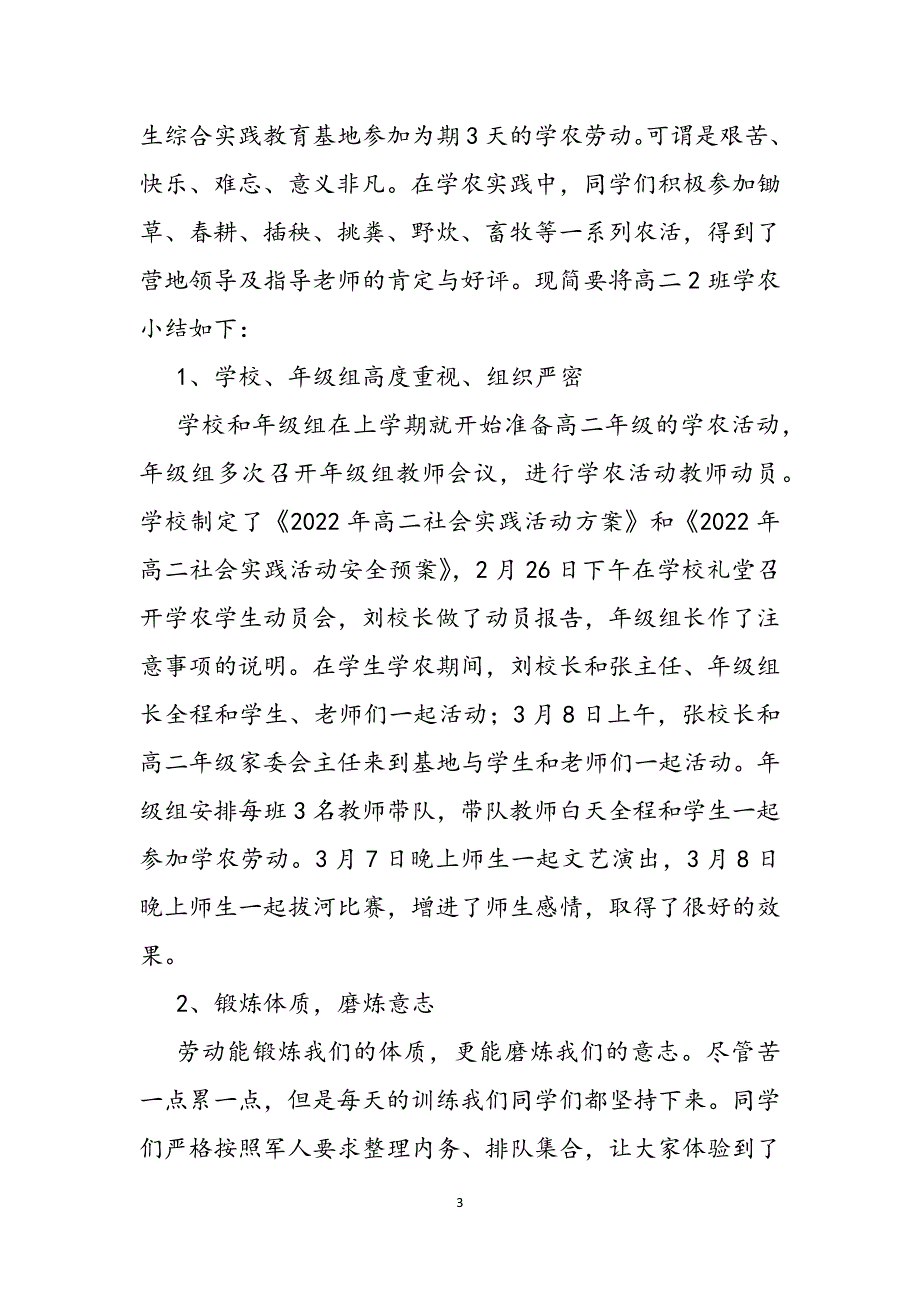 生综合实践教育基地参加为期3天的学农劳动。可谓是艰苦、
快乐、难忘、意义非凡。在学农实践中，同学们积极参加锄
草、春耕、插秧、挑粪、野炊、畜牧等一系列农活，得到了
营地领导及指导老师的肯定与好评。现简要将高二2班学农
小结如下：
1、学校、年级组高度重视、组织严密
学校和年级组在上学期就开始准备高二年级的学农活动，
年级组多次召开年级组教师会议，进行学农活动教师动员。
学校制定了《2022年高二社会实践活动方案》和《2022年
高二社会实践活动安全预案》，2月26日下午在学校礼堂召
开学农学生动员会，刘校长做了动员报告，年级组长作了注
意事项的说明。在学生学农期间，刘校长和张主任、年级组
长全程和学生、老师们一起活动；3月8日上午，张校长和
高二年级家委会主任来到基地与学生和老师们一起活动。年
级组安排每班3名教师带队，带队教师白天全程和学生一起
参加学农劳动。3月7日晚上师生一起文艺演出，3月8日
晚上师生一起拔河比赛，增进了师生感情，取得了很好的效
果。
2、锻炼体质，磨炼意志
劳动能锻炼我们的体质，更能磨炼我们的意志。尽管苦
一点累一点，但是每天的训练我们同学们都坚持下来。同学
们严格按照军人要求整理内务、排队集合，让大家体验到了
3